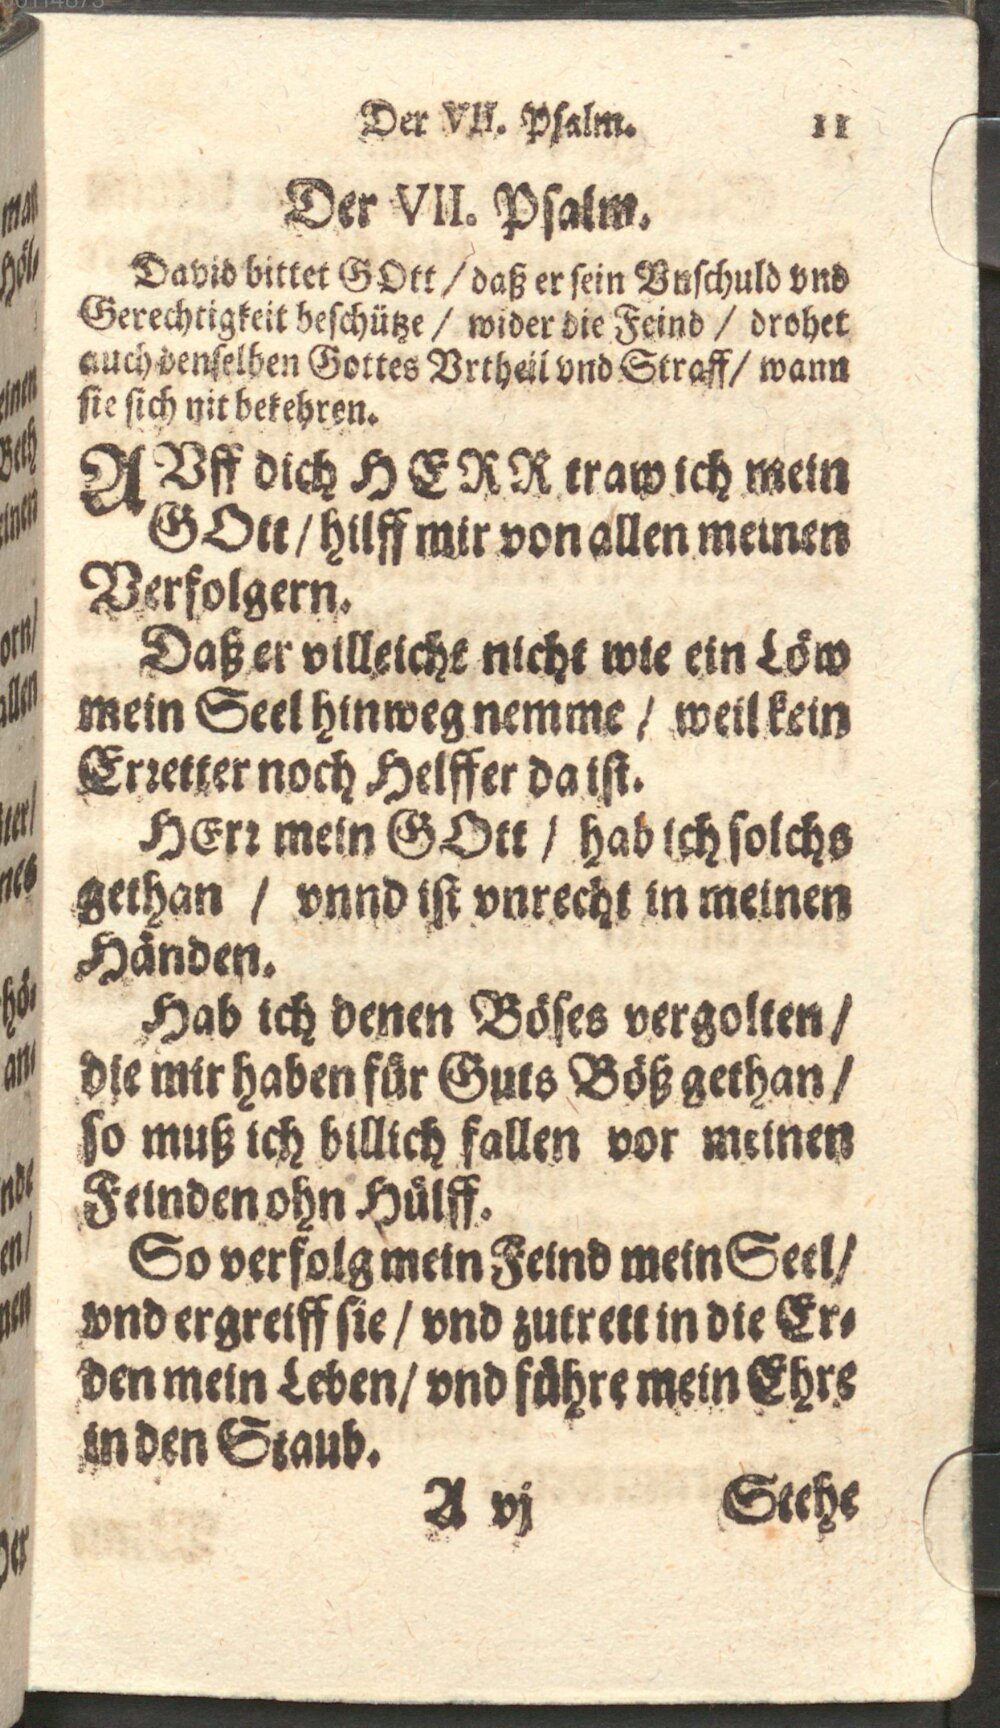 Der VII. Psalm. 11
Der VII. Psalm.
David bittet GOtt / daß er sein Vnschuld vnd
Gerechtigkeit beschütze / wider die Feind / drohet
auch denselben Gottes Vrtheil vnd Straff / wann
sie sich nit bekehren.
AVff dich HERR traw ich mein
GOtt / hilff mir von allen meinen
Verfolgern.
Daß er villeicht nicht wie ein Löw
mein Seel hinweg nemme / weil kein
Erretter noch Helffer da ist.
HErr mein GOtt / hab ich solchs
gethan / vnnd ist vnrecht in meinen
Händen.
Hab ich denen Böses vergolten /
die mir haben für Guts Böß gethan /
so muß ich billich fallen vor meinen
Feinden ohn Hülff.
So verfolg mein Feind mein Seel /
vnd ergreiff sie / vnd zutrett in die Er-
den mein Leben / vnd führe mein Ehre
in den Staub.
A vj Siehe